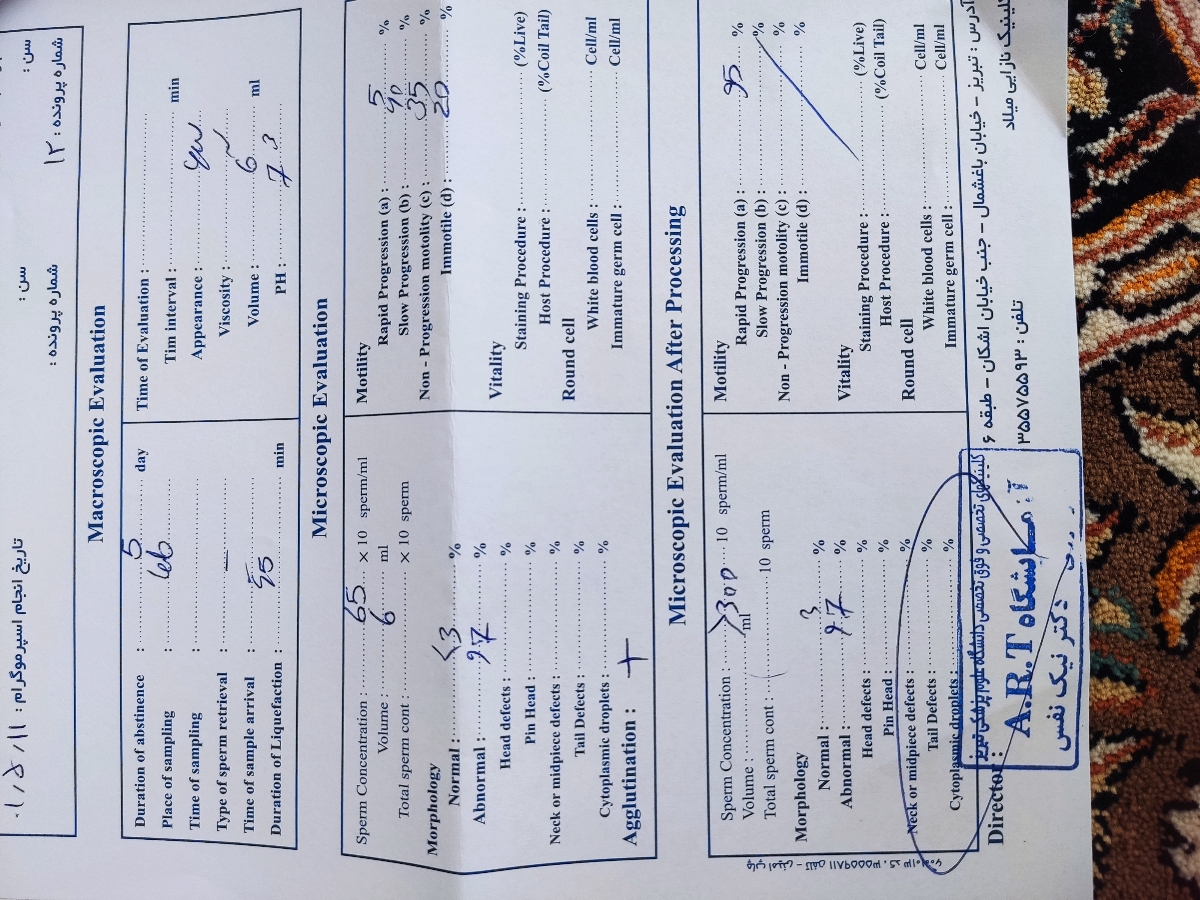 سن :
شماره پرونده : ۱۲
سن :
شماره پرونده :
تاریخ انجام اسپرموگرام : ۰۱,۵,۱۱
Macroscopic Evaluation
Duration of abstinence : 5 day
Place of sampling : Lab
Time of sampling :
Type of sperm retrieval : —
Time of sample arrival :
Duration of Liquefaction : min
Time of Evaluation :
Tim interval : min
Appearance :
Viscosity :
Volume : 6 ml
PH : 7.3
Microscopic Evaluation
Sperm Concentration : 65 × 10 sperm/ml
Volume : 6 ml
Total sperm cont : × 10 sperm
Morphology
Normal : <3 %
Abnormal : 97 %
Head defects : %
Pin Head : %
Neck or midpiece defects : %
Tail Defects : %
Cytoplasmic droplets : %
Agglutination : +
Motility
Rapid Progression (a) : 5 %
Slow Progression (b) : 40 %
Non - Progression motolity (c) : 35 %
Immotile (d) : 20 %
Vitality
Staining Procedure : (%Live)
Host Procedure : (%Coil Tail)
Round cell
White blood cells : Cell/ml
Immature germ cell : Cell/ml
Microscopic Evaluation After Processing
Sperm Concentration : >300 10 sperm/ml
Volume : ml
Total sperm cont : 10 sperm
Morphology
Normal : 3 %
Abnormal : 97 %
Head defects : %
Pin Head : %
Neck or midpiece defects : %
Tail Defects : %
Cytoplasmic droplets : %
Motility
Rapid Progression (a) : 95 %
Slow Progression (b) : %
Non - Progression motolity (c) : %
Immotile (d) : %
Vitality
Staining Procedure : (%Live)
Host Procedure : (%Coil Tail)
Round cell
White blood cells : Cell/ml
Immature germ cell : Cell/ml
Director :
کلینیکهای تخصصی و فوق تخصصی دانشگاه علوم پزشکی تبریز
A.R.T
دکتر نیک نفس
آدرس : تبریز - خیابان باغشمال - جنب خیابان اشکان - طبقه ۶
کلینیک نازایی میلاد
تلفن : ۳۵۵۷۵۵۹۳